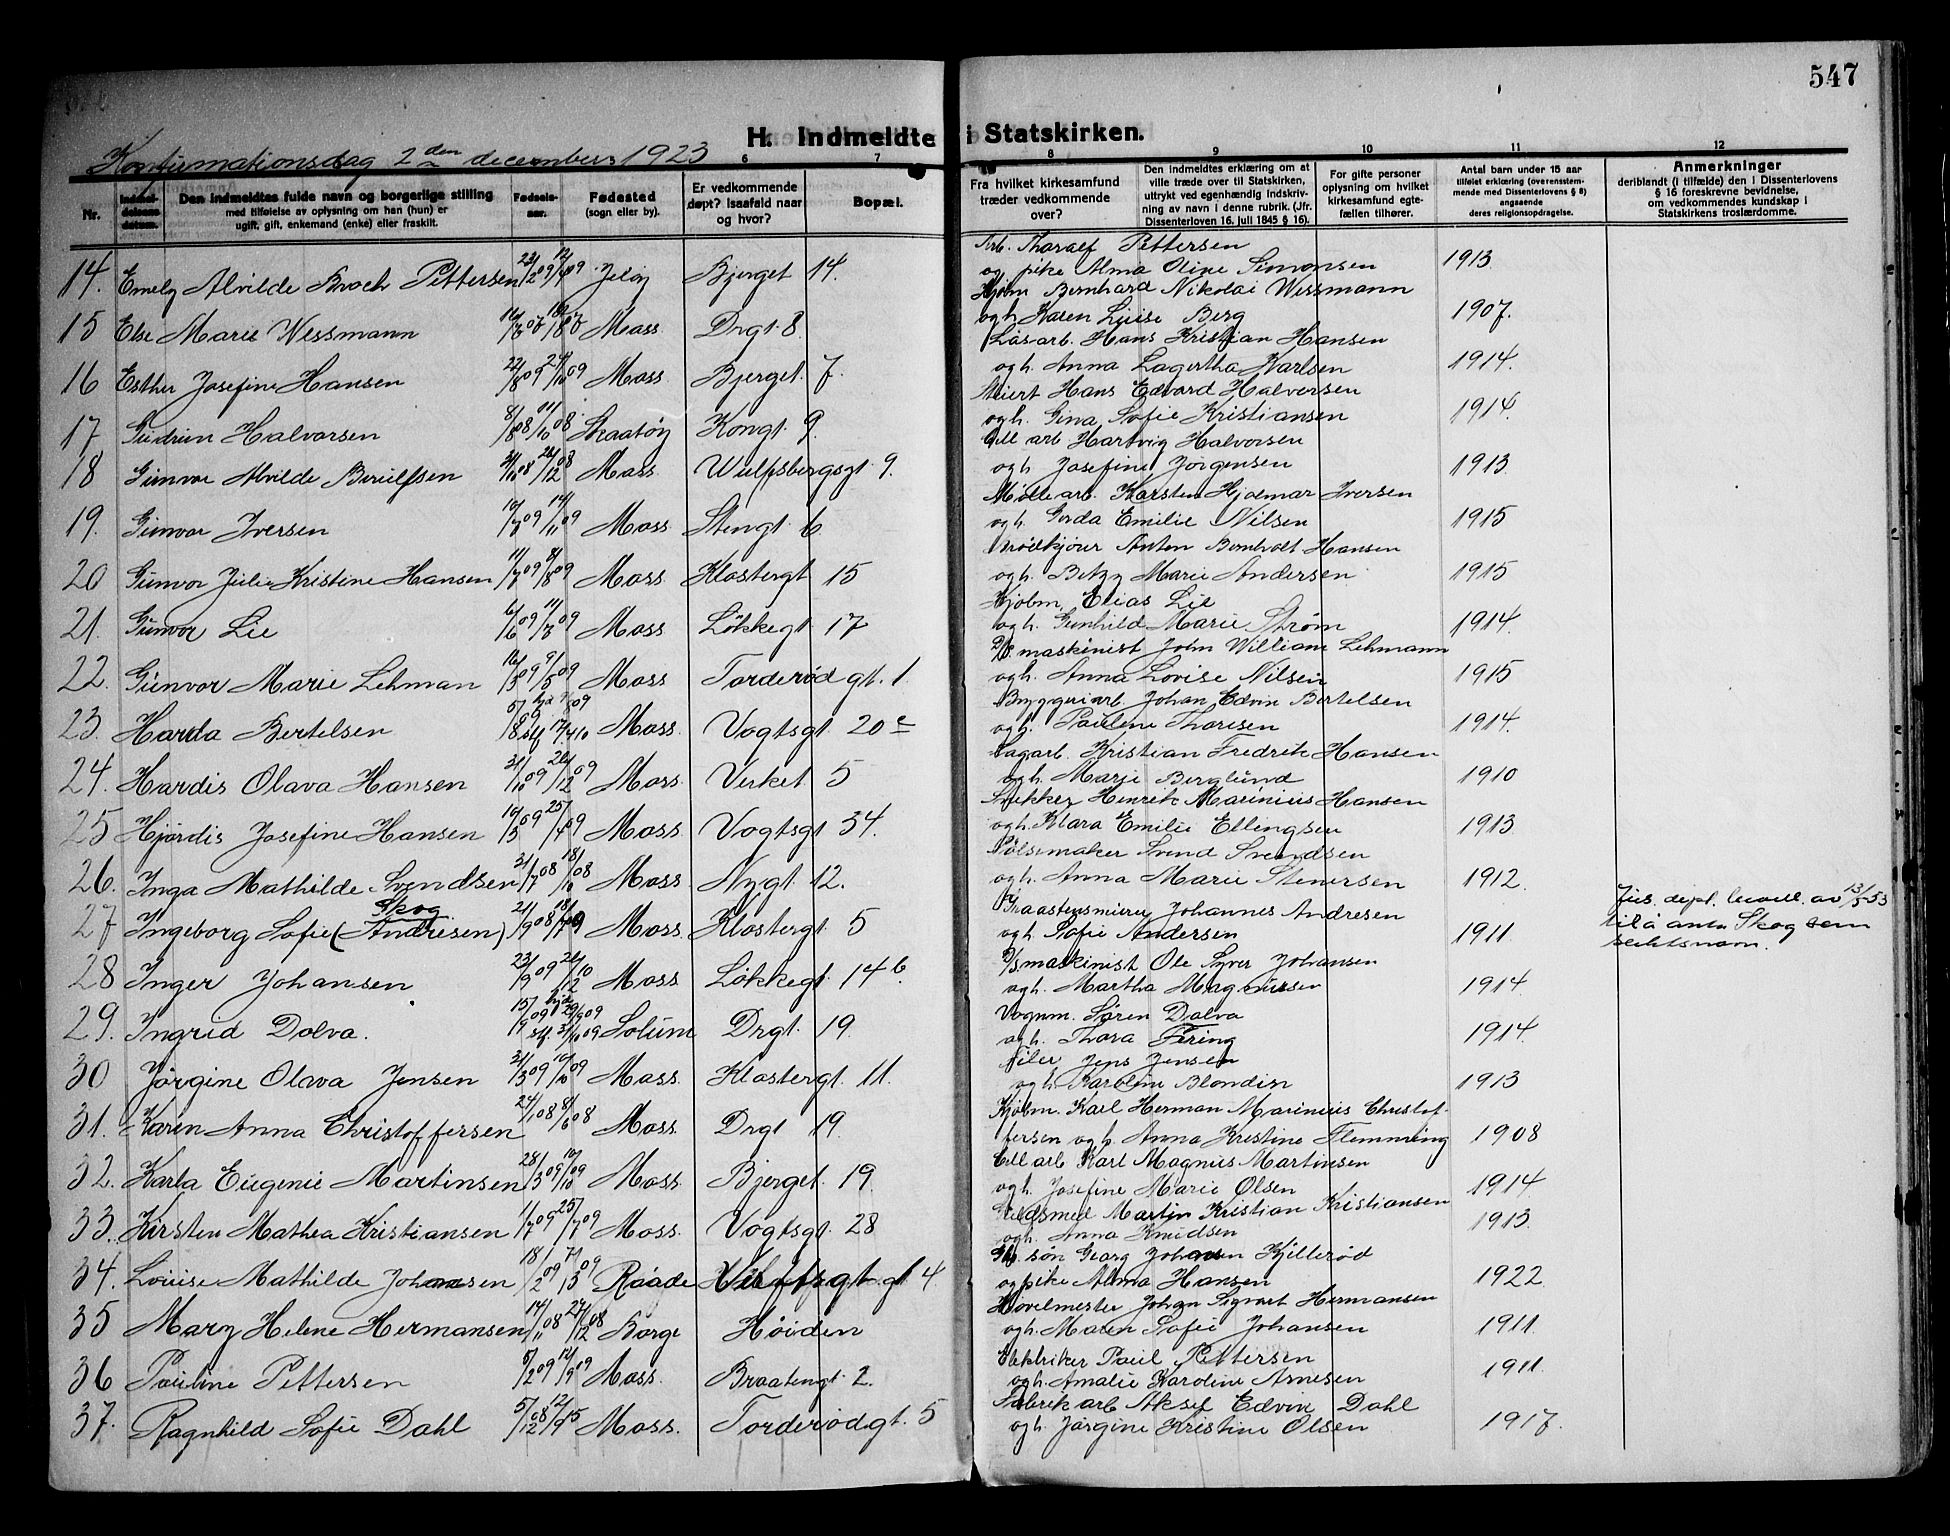 547
H. Indmeldte i Statskirken.
Konfirmationsdag 2den december 1923
6 7 8 9 10 11 12
Nr.
Indmeldelsens datum.
Den indmeldtes fulde navn og borgerlige stilling
med tilføielse av oplysning om han (hun) er
ugift, gift, enkemand (enke) eller fraskilt.
Fødselsaar.
Fødested
(sogn eller by).
Er vedkommende
døpt? Isaafald naar
og hvor?
Bopæl.
Fra hvilket kirkesamfund
træder vedkommende
over?
Den indmeldtes erklæring om at
ville træde over til Statskirken,
uttrykt ved egenhændig indskriv-
ning av navn i denne rubrik. (Jfr.
Dissenterloven 16. juli 1845 § 16).
For gifte personer
oplysning om hvilket
kirkesamfund egte-
fællen tilhører.
Antal barn under 15 aar
tilføiet erklæring (overensstem-
mende med Dissenterlovens § 8)
angaaende
deres religionsopdragelse.
Anmerkninger
deriblandt (i tilfælde) den i Dissenterlovens
§ 16 foreskrevne bevidnelse,
om vedkommendes kundskap i
Statskirkens troslærdomme.
14. Emely Alvilde Broch Pettersen Jeløy Bjerget 14. Arb. Thoralf Pettersen
og pike Alma Oline Simonsen 1913
15 Else Marie Wessmann Moss Drgt. 8. Kjøbm Bernhard Nikolai Wessmann
og h. Karen Lovise Berg 1907.
16 Esther Josefine Hansen 22/8 09 24/10 09 Moss Bjerget 7. Løsarb. Hans Kristian Hansen
og h. Anna Lagertha Karlsen 1914.
17 Gudrun Halvorsen 8/8 08 11/10 08 Skaatøy Kongt. 9. Meiert Hans Edvard Halvorsen
og h. Gina Sofie Kristiansen 1914.
18 Gunvor Alvilde Berulfsen Moss Wulfsbergsgt. 9. Cell arb Hartvig Halvorsen
og h. Josefine Jørgensen 1913
19. Gunvor Iversen Moss Stengt. 6 Mølle arb. Karsten Hjalmar Iversen
og h. Gerda Emilie Nilsen 1915
20 Gunvor Julie Kristine Hansen 11/7 09 8/8 09 Moss Klostergt 15 Brødkjører Anton Bernholt Hansen
og h. Betzy Marie Andersen 1915
21. Gunvor Lie Moss Løkkegt. 17 Kjøbm. Elias Lie
og h. Gunhild Marie Strøm 1914.
22. Gunvor Marie Lehman 16/3 09 9/5 09 Moss Torderød gt. 1. D/S. maskinist John William Lehmann
og h. Anna Lovise Nilsen 1915
23. Harda Bertelsen Moss Vogtsgt 20 c Bryggeriarb Johan Edvin Bertelsen
og h. Pauline Thoresen 1914.
24. Hardis Olava Hansen 31/10 09 26/12 09 Moss Verket 5 Sagarb. Kristian Fredrik Hansen
og h. Marie Berglund 1910
25 Hjørdis Josefine Hansen 10/3 09 25/4 09 Moss Vogtsgt 34. Snekker Henrik Marinius Hansen
og h. Klara Emilie Ellingsen 1913
26. Inga Mathilde Svendsen 31/7 08 18/10 08 Moss Nygt. 12. Pølsemaker Svend Svendsen
og h. Anna Marie Stenersen 1912.
27 Ingeborg Sofie (Andresen) Skog Moss Klostergt 5 Graastensmurer Johannes Andresen
og h. Sofie Andersen 1911. Jus. dept. bevill. av 13/5-53
til å anta Skog som
slektsnavn.
28 Inger Johansen Moss Løkkegt 14 b. D/S. maskinist Ole Syver Johansen
og h. Martha Magnussen 1914
29. Ingrid Dolva. Solum Drgt. 19. Vognm. Søren Dolva
og h. Thora Fering 1914.
30 Jørgine Olava Jensen 31/3 09 10/10 09 Moss Klostergt. 11. Filer Jens Jensen
og h. Karoline Blondin 1913
31. Karen Anna Christoffersen 24/1 08 8/6 08 Moss. Drgt 19. Kjøbm. Karl Herman Marinius Christof-
fersen og h. Anna Kristine Flemming 1908
32. Karla Eugenie Martinsen 28/3 09 10/10 09 Moss. Bjerget. 19. Cell arb Karl Magnus Martinsen
og h. Josefine Marie Olsen 1914.
33. Kirsten Mathea Kristiansen 11/7 09 25/7 09 Moss. Vogtsgt. 28 Guldsmed Martin Kristian Kristiansen
og h. Anna Knudsen 1913.
34. Lovise Mathilde Johansen 18/2 09 7/3 09 Raade 4 Gb. søn Georg Johansen Kjillerød
og pike Alma Hansen 1922
35 Mary Helene Hermansen 14/11 08 27/12 08 Borge Høiden Høvelmester Johan Sigvart Hermansen
og h. Maren Sofie Johansen 1911.
36 Pauline Pettersen Moss. Braatengt. 2. Elektriker Paul Pettersen
og h. Amalie Karoline Arnesen 1911.
37. Ragnhild Sofie Dahl Moss. Torderødgt. 5 Fabrik arb Aksel Edvin Dahl
og h. Jørgine Kristine Olsen 1917.